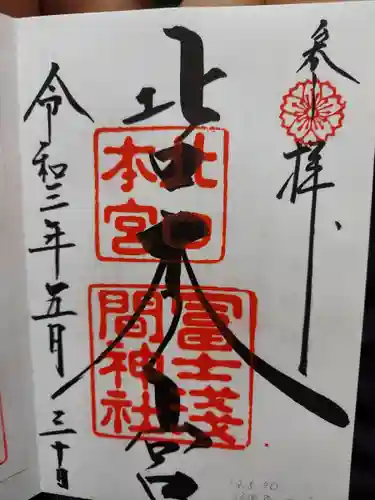 参拝
北口本宮
冨士浅間神社
北口本宮
令和三年五月三十日